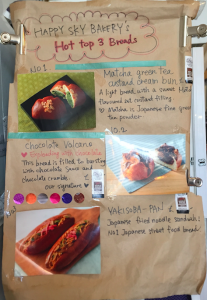 HAPPY SKY BAKERY's
Hot top 3 Breads
NO.1
Matcha green tea
custard cream bun
A light bread with a sweet
flavoured oat custard filling
Matcha is Japanese fine green
tea powder
NO.2
Chocolate Volcano
This bread is filled to bursting
with chocolate sauce and
chocolate crumble.
our signature
YAKISOBA-PAN
Japanese fried noodle sandwich
NO.1 Japanese street food bread